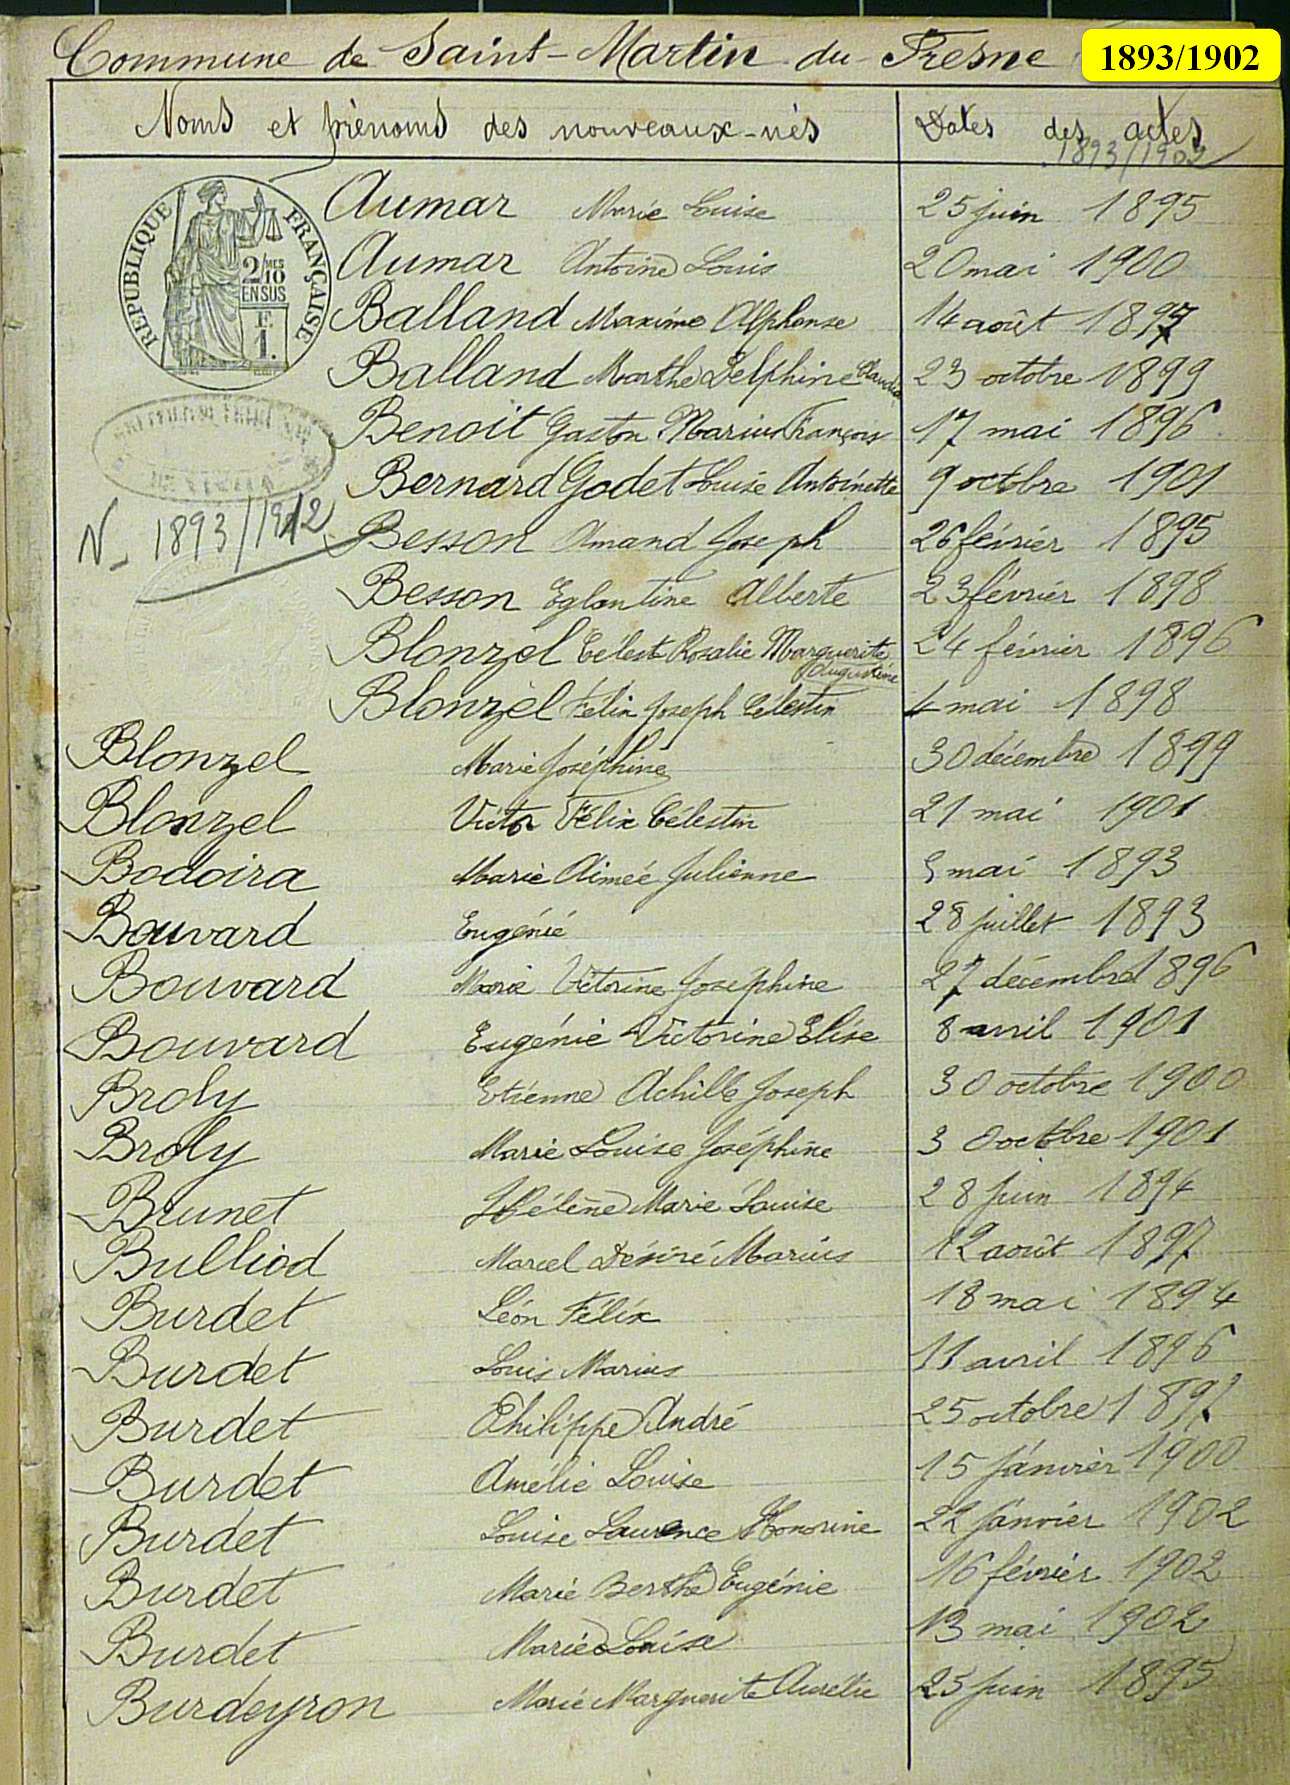 Commune de Saint-Martin du Fresne
1893/1902
Noms et prénoms des nouveaux-nés Dates des actes
1893/1902
RÉPUBLIQUE FRANÇAISE
2/10 MES
EN SUS
F.
1.
N_ 1893/1912
Aumar Marie Louise 25 juin 1895
Aumar Antoine Louis 20 mai 1900
Balland Maxime Alphonse 14 août 1897
Balland Marthe Delphine Claudia 23 octobre 1899
Benoit Gaston Marius François 17 mai 1896
Bernard Godet Louise Antoinette 9 octobre 1901
Besson Amand Joseph 26 février 1895
Besson Eglantine Alberte 23 février 1898
Blonzel Céleste Rosalie Marguerite 24 février 1896
Augustine
Blonzel Félix Joseph Célestin 4 mai 1898
Blonzel Marie Joséphine 30 décembre 1899
Blonzel Victor Félix Célestin 21 mai 1901
Bodoira Marie Aimée Julienne mai 1893
Bouvard Eugénie 28 juillet 1893
Bouvard Marie Victorine Joséphine 27 décembre 1896
Bouvard Eugénie Victorine Elise 8 avril 1901
Broly Etienne Achille Joseph 30 octobre 1900
Broly Marie Louise Joséphine 3 octobre 1901
Brunet Hélène Marie Louise 28 juin 1894
Bulliod Marcel Désiré Marius 12 août 1897
Burdet Léon Félix 18 mai 1894
Burdet Louis Marius 11 avril 1896
Burdet Philippe André 25 octobre 1897
Burdet Amélie Louise 15 janvier 1900
Burdet Louise Laurence Honorine 22 janvier 1902
Burdet Marie Berthe Eugénie 16 février 1902
Burdet Marie Louise 13 mai 1902
Burdeyron Marie Marguerite Aurélie 25 juin 1895